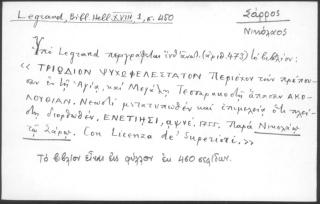 Legrand, Bibl. Hell. XVIII, 1, σ. 450
Σάρρος
Νικόλαος
Ὑπὸ Legrand περιγράφεται ὑπ' ἀριθ. (ἀριθ. 473) τὸ βιβλίον:
« ΤΡΙΩΔΙΟΝ ΨΥΧΩΦΕΛΕΣΤΑΤΟΝ Περιέχον τὴν πρέπου-
σαν ἐν τῇ Ἁγίᾳ, καὶ Μεγάλῃ Τεσσαρακοστῇ ἅπασαν ΑΚΟ-
ΛΟΥΘΙΑΝ. Νεωστὶ μετατυπωθὲν καὶ ἐπιμελείᾳ ὅτι πλεί-
στῃ διορθωθέν. ΕΝΕΤΙΗΣΙ, αψνε. 1755. Παρὰ Νικολάῳ
τῷ Σάρῳ. Con Licenza de' Superiori. »
Τὸ βιβλίον εἶναι εἰς φύλλον ἐκ 460 σελίδων.